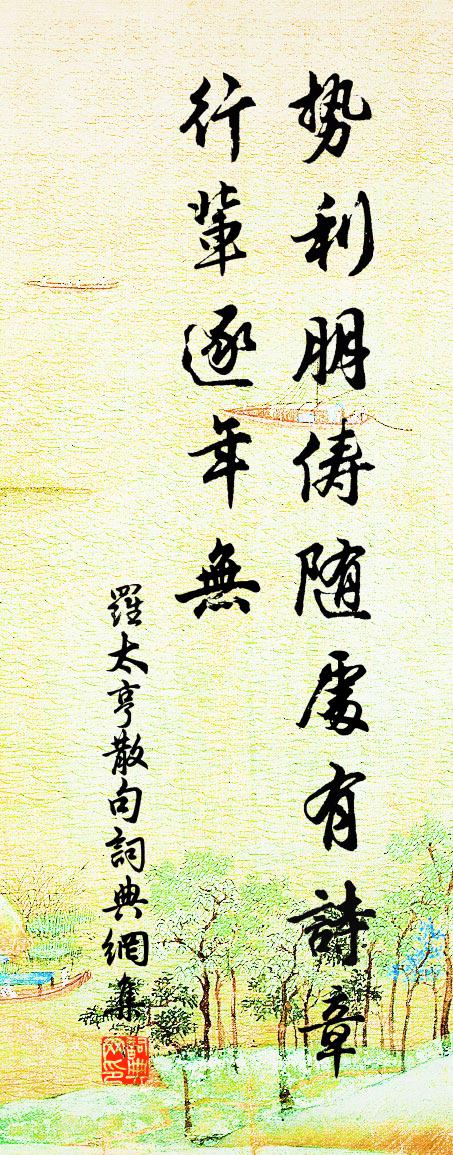 势利朋俦随處有詩章
行輩逐年無
羅太亨散句詞典網集